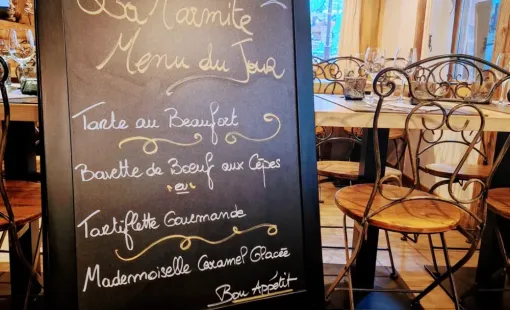 La Marmite
Menu du Jour
Tarte au Beaufort
Bavette de Bœuf aux Cèpes
ou
Tartiflette Gourmande
Mademoiselle Caramel Glacée
Bon Appétit